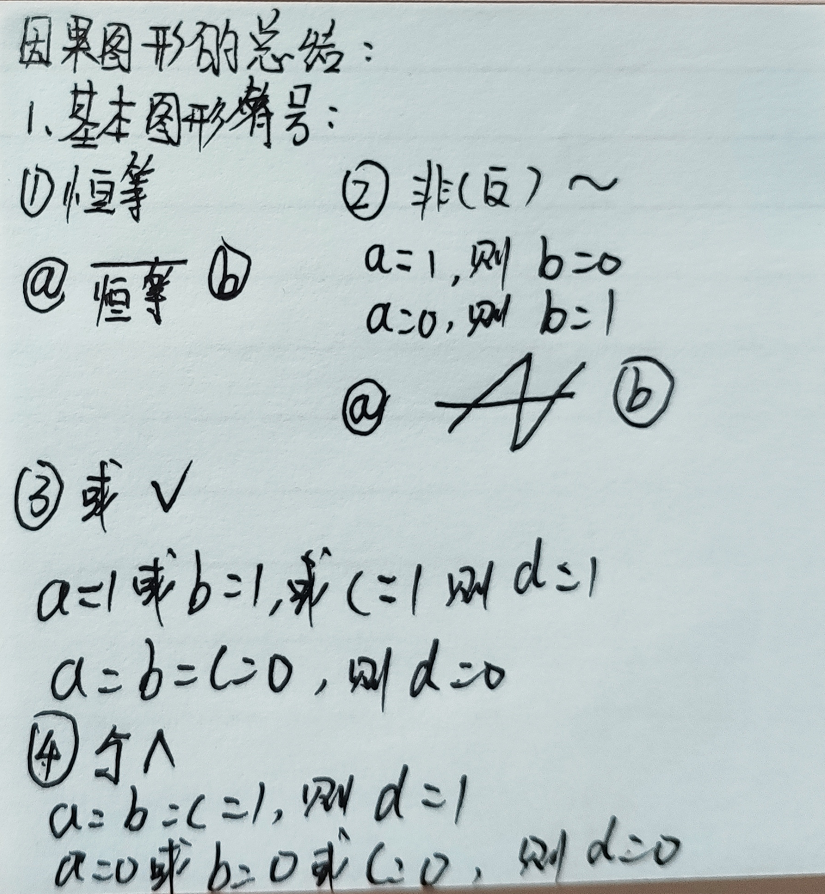 因果图形的总结:
1、基本图形符号:
①恒等
ⓐ 恒等 ⓑ
② 非(反) ~
a=1,则 b=0
a=0,则 b=1
ⓐ ⓑ
③ 或 ∨
a=1或b=1,或c=1则d=1
a=b=c=0,则d=0
④ 与∧
a=b=c=1,则d=1
a=0或b=0或c=0,则d=0